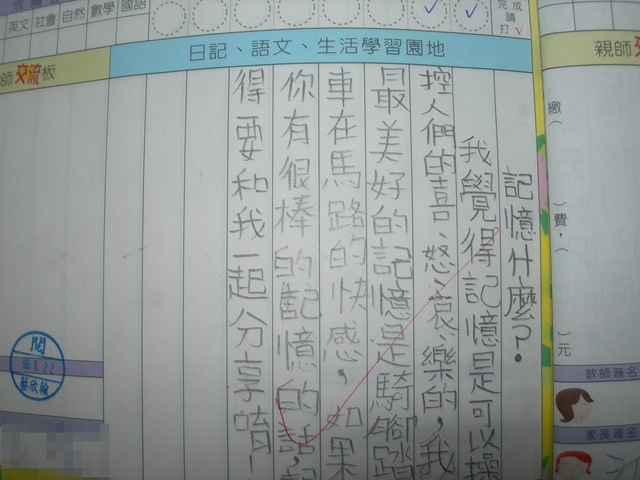 英文 社會 自然 數學 國語
完成請打✓
日記、語文、生活學習園地
師交流板
親師
記憶什麼?。
我覺得記憶是可以操
控人們的喜、怒、哀、樂的,我
最美好的記憶是騎腳踏
車在馬路的快感,如果
你有很棒的記憶的話,
得要和我一起分享唷!
閱
98.9.22
蔡欣翰
繳(
)費,(
)元
教師簽名
家長簽名